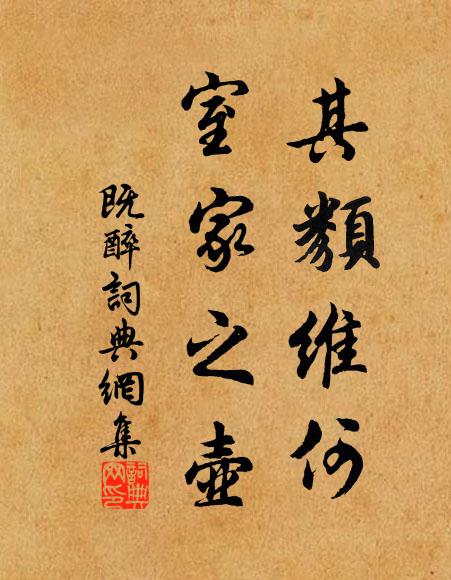 其類維何
室家之壺
既醉詞典網集
詞典
网印